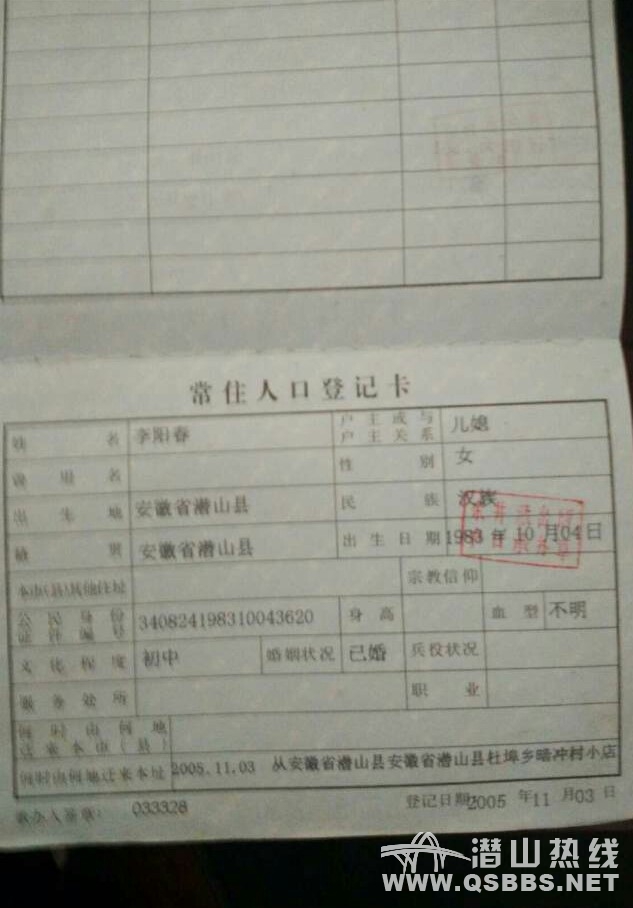 常住人口登记卡
姓名 李阳春 户主或与户主关系 儿媳
曾用名 性别 女
出生地 安徽省潜山县 民族 汉族
籍贯 安徽省潜山县 出生日期 1983年10月04日
本市(县)其他住址 宗教信仰
公民身份证件编号 340824198310043620 身高 血型 不明
文化程度 初中 婚姻状况 已婚 兵役状况
服务处所 职业
何时由何地迁来本市(县)
何时由何地迁来本址 2005.11.03 从安徽省潜山县安徽省潜山县杜埠乡暗冲村小店
承办人签章: 033328 登记日期: 2005年11月03日
潜山热线
WWW.QSBBS.NET